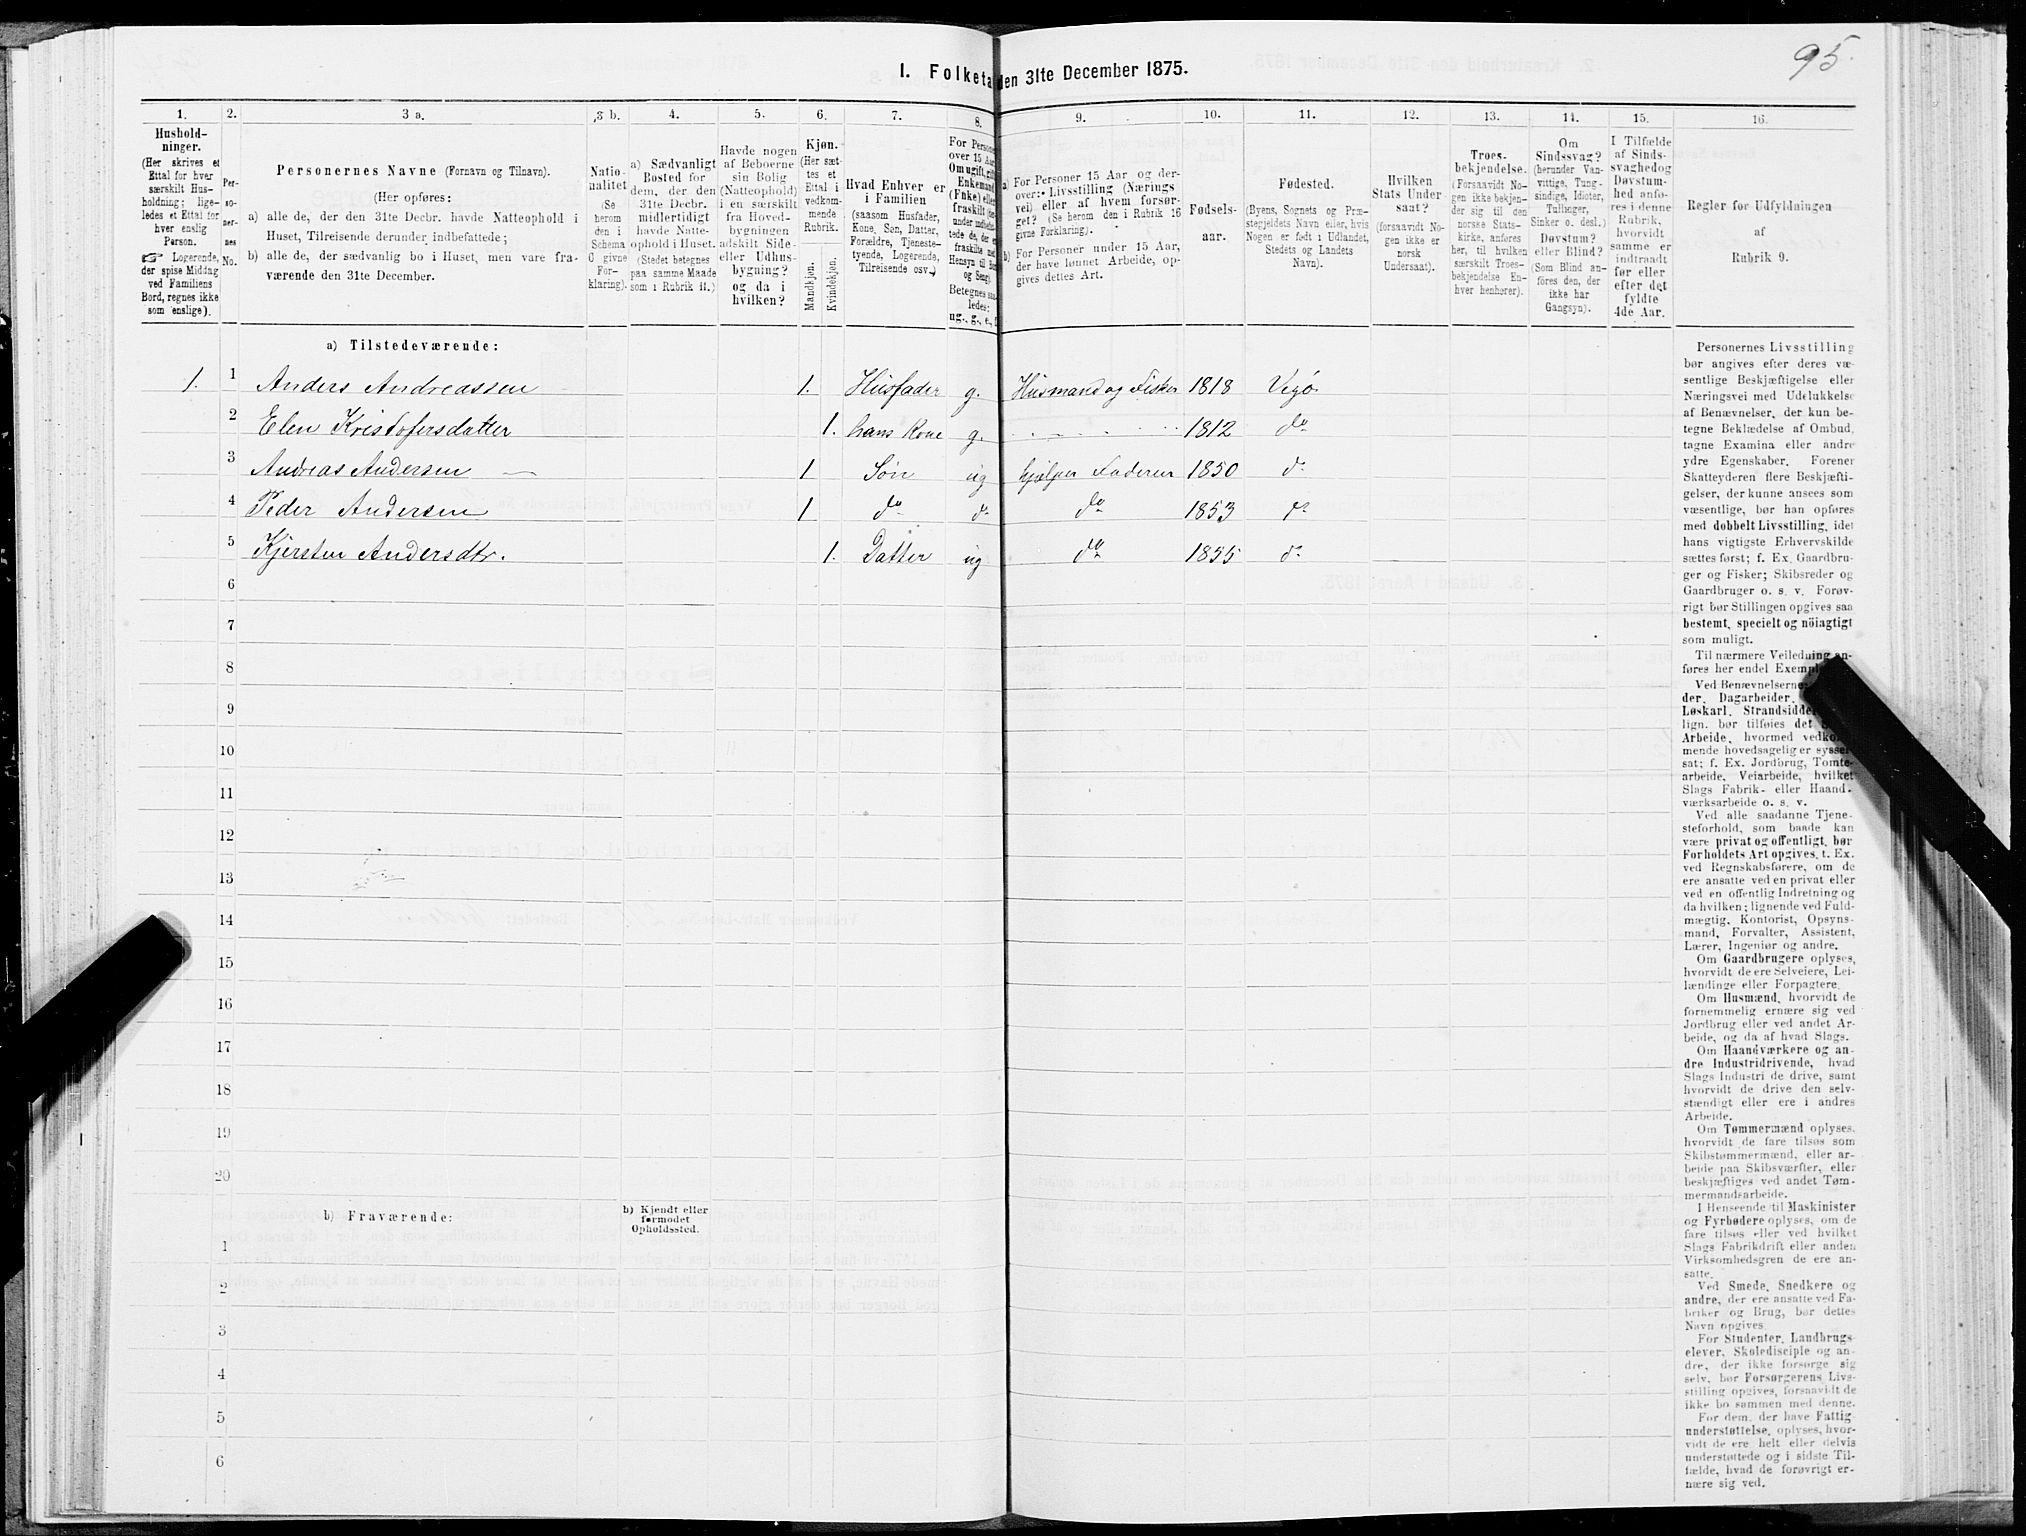 95.
I. Folketa den 31te December 1875.
1. 2. 3 a. 3 b. 4. 5. 6. 7. 8. 9. 10. 11. 12. 13. 14. 15. 16.
Hushold-
ninger.
(Her skrives et
Ettal for hver
særskilt Hus-
holdning; lige-
ledes et Ettal for
hver enslig
Person.
☞ Logerende,
der spise Middag
ved Familiens
Bord, regnes ikke
som enslige).
Per-
so-
ner-
nes
No.
Personernes Navne (Fornavn og Tilnavn).
(Her opføres:
a) alle de, der den 31te Decbr. havde Natteophold i
Huset, Tilreisende derunder indbefattede;
b) alle de, der sædvanlig bo i Huset, men vare fra-
værende den 31te December.
Natio-
nalitet
(Se
herom
den i
Schema
O givne
For-
klaring).
a) Sædvanligt
Bosted for
dem, der den
31te Decbr.
midlertidigt
havde Natte-
ophold i Huset.
(Stedet betegnes
paa samme Maade
som i Rubrik 11.)
Havde nogen
af Beboerne
sin Bolig
(Natteophold)
i en særskilt
fra Hoved-
bygningen
adskilt Side-
eller Udhus-
bygning?
og da i
hvilken?
Kjøn.
(Her sæt-
tes et
Ettal i
vedkom-
mende
Rubrik.
Mandkjøn.
Kvindekjøn.
Hvad Enhver er
i Familien
(saasom Husfader,
Kone, Søn, Datter,
Forældre, Tjeneste-
tyende, Logerende,
Tilreisende osv.)
For Persone
over 15 Aar
Om ugift, gift
Enkemand
(Enke) eller
fraskilt
Hensyn til Bor
og Seng).
Betegnes saa-
ledes:
ug., g., e., f.
a) For Personer 15 Aar og der-
over: Livsstilling (Nærings
vei) eller af hvem forsør-
get? (Se herom den i Rubrik 16
givne Forklaring).
b) For Personer under 15 Aar,
der have lønnet Arbeide, op-
gives dettes Art.
Fødsels-
aar.
Fødested.
(Byens, Sognets og Præ-
stegjeldets Navn eller, hvis
Nogen er født i Udlandet,
Stedets og Landets
Navn).
Hvilken
Stats Under
saat?
(forsaavidt No-
gen ikke er
norsk
Undersaat).
Troes-
bekjendelse.
(Forsaavidt No-
gen ikke bekjen-
der sig til den
norske Stats-
kirke, anføres
her, til hvilken
særskilt Troes-
bekjendelse En-
hver henhører).
Om
Sindssvag?
(herunder Van-
vittige, Tung-
sindige, Idioter,
Tullinger,
Sinker o. desl.)
Døvstum?
eller Blind?
(Som Blind an-
føres den, der
ikke har
Gangsyn).
I Tilfælde
af Sinds-
svaghed og
Døvstum-
hed anfø-
res i denne
Rubrik,
hvorvidt
samme er
indtraadt
før eller
efter det
fyldte
4de Aar.
Regler for Udfyldningen
af
Rubrik 9.
a) Tilstedeværende:
1. 1 Anders Andreassen 1. Husfader g. Husmand og Fisker 1818 Vegø
2 Elen Kristofersdatter 1. hans Kone g. 1812 do
3 Andreas Andersen 1 Søn ug hjelper Faderen 1850 do
4 Peder Andersen 1 do do do 1853 do
5 Kjersten Andersdtr. 1. Datter ug do 1855 do
6
7
8
9
10
11
12
13
14
15
16
17
18
19
20
b) Fraværende:
b) Kjendt eller
formodet
Opholdssted.
1
2
3
4
5
6
Personernes Livsstilling
bør angives efter deres væ-
sentlige Beskjæftigelse eller
Næringsvei med Udelukkelse
af Benævnelser, der kun be-
tegne Beklædelse af Ombud,
tagne Examina eller andre
ydre Egenskaber. Forener
Skatteyderen flere Beskjæfti-
gelser, der kunne ansees som
væsentlige, bør han opføres
med dobbelt Livsstilling, idet
hans vigtigste Erhvervskilde
sættes først; f. Ex. Gaardbru-
ger og Fisker; Skibsreder og
Gaardbruger o. s. v. Forøv-
rigt bør Stillingen opgives saa
bestemt, specielt og nöiagtigt
som muligt.
Til nærmere Veiledning an-
føres her endel Exemp
Ved Benævnelserne
der, Dagarbeider,
Løskarl, Strandsidde
lign. bør tilføies det
Arbeide, hvormed vedko
mende hovedsagelig er syssel-
sat; f. Ex. Jordbrug, Tomte-
arbeide, Veiarbeide, hvilket
Slags Fabrik- eller Haand-
værksarbeide o. s. v.
Ved alle saadanne Tjene-
steforhold, som baade kan
være privat og offentligt, bør
Forholdets Art opgives, t. Ex.
ved Regnskabsførere, om de
ere ansatte ved en privat eller
ved en offentlig Indretning og
da hvilken; lignende ved Fuld-
mægtig, Kontorist, Opsyns-
mand, Forvalter, Assistent,
Lærer, Ingeniør og andre.
Om Gaardbrugere oplyses,
hvorvidt de ere Selveiere, Lei-
lændinge eller Forpagtere.
Om Husmænd, hvorvidt de
fornemmelig ernære sig ved
Jordbrug eller ved andet Ar-
beide, og da af hvad Slags.
Om Haandværkere og an-
dre Industridrivende, hvad
Slags Industri de drive, samt
hvorvidt de drive den selv-
stændigt eller ere i andres
Arbeide.
Om Tømmermænd oplyses,
hvorvidt de fare tilsøs som
Skibstømmermænd, eller ar-
beide paa Skibsværfter, eller
beskjæftiges ved andet Tøm-
mermandsarbeide.
I Henseende til Maskinister
og Fyrbødere oplyses, om de
fare tilsøs eller ved hvilket
Slags Fabrikdrift eller anden
Virksomhedsgren de ere an-
satte.
Ved Smede, Snedkere og
andre, der ere ansatte ved Fa-
briker og Brug, bør dettes
Navn opgives.
For Studenter, Landbrugs-
elever, Skoledisciple og an-
dre, der ikke forsørge sig
selv, bør Forsørgerens Livs-
stilling opgives, forsaavidt de
ikke bo sammen med denne.
For dem, der have Fattig-
understøttelse, oplyses, hvor-
vidt de ere helt eller delvis
understøttede og i sidste Til-
fælde, hvad de forøvrigt er-
nære sig ved.